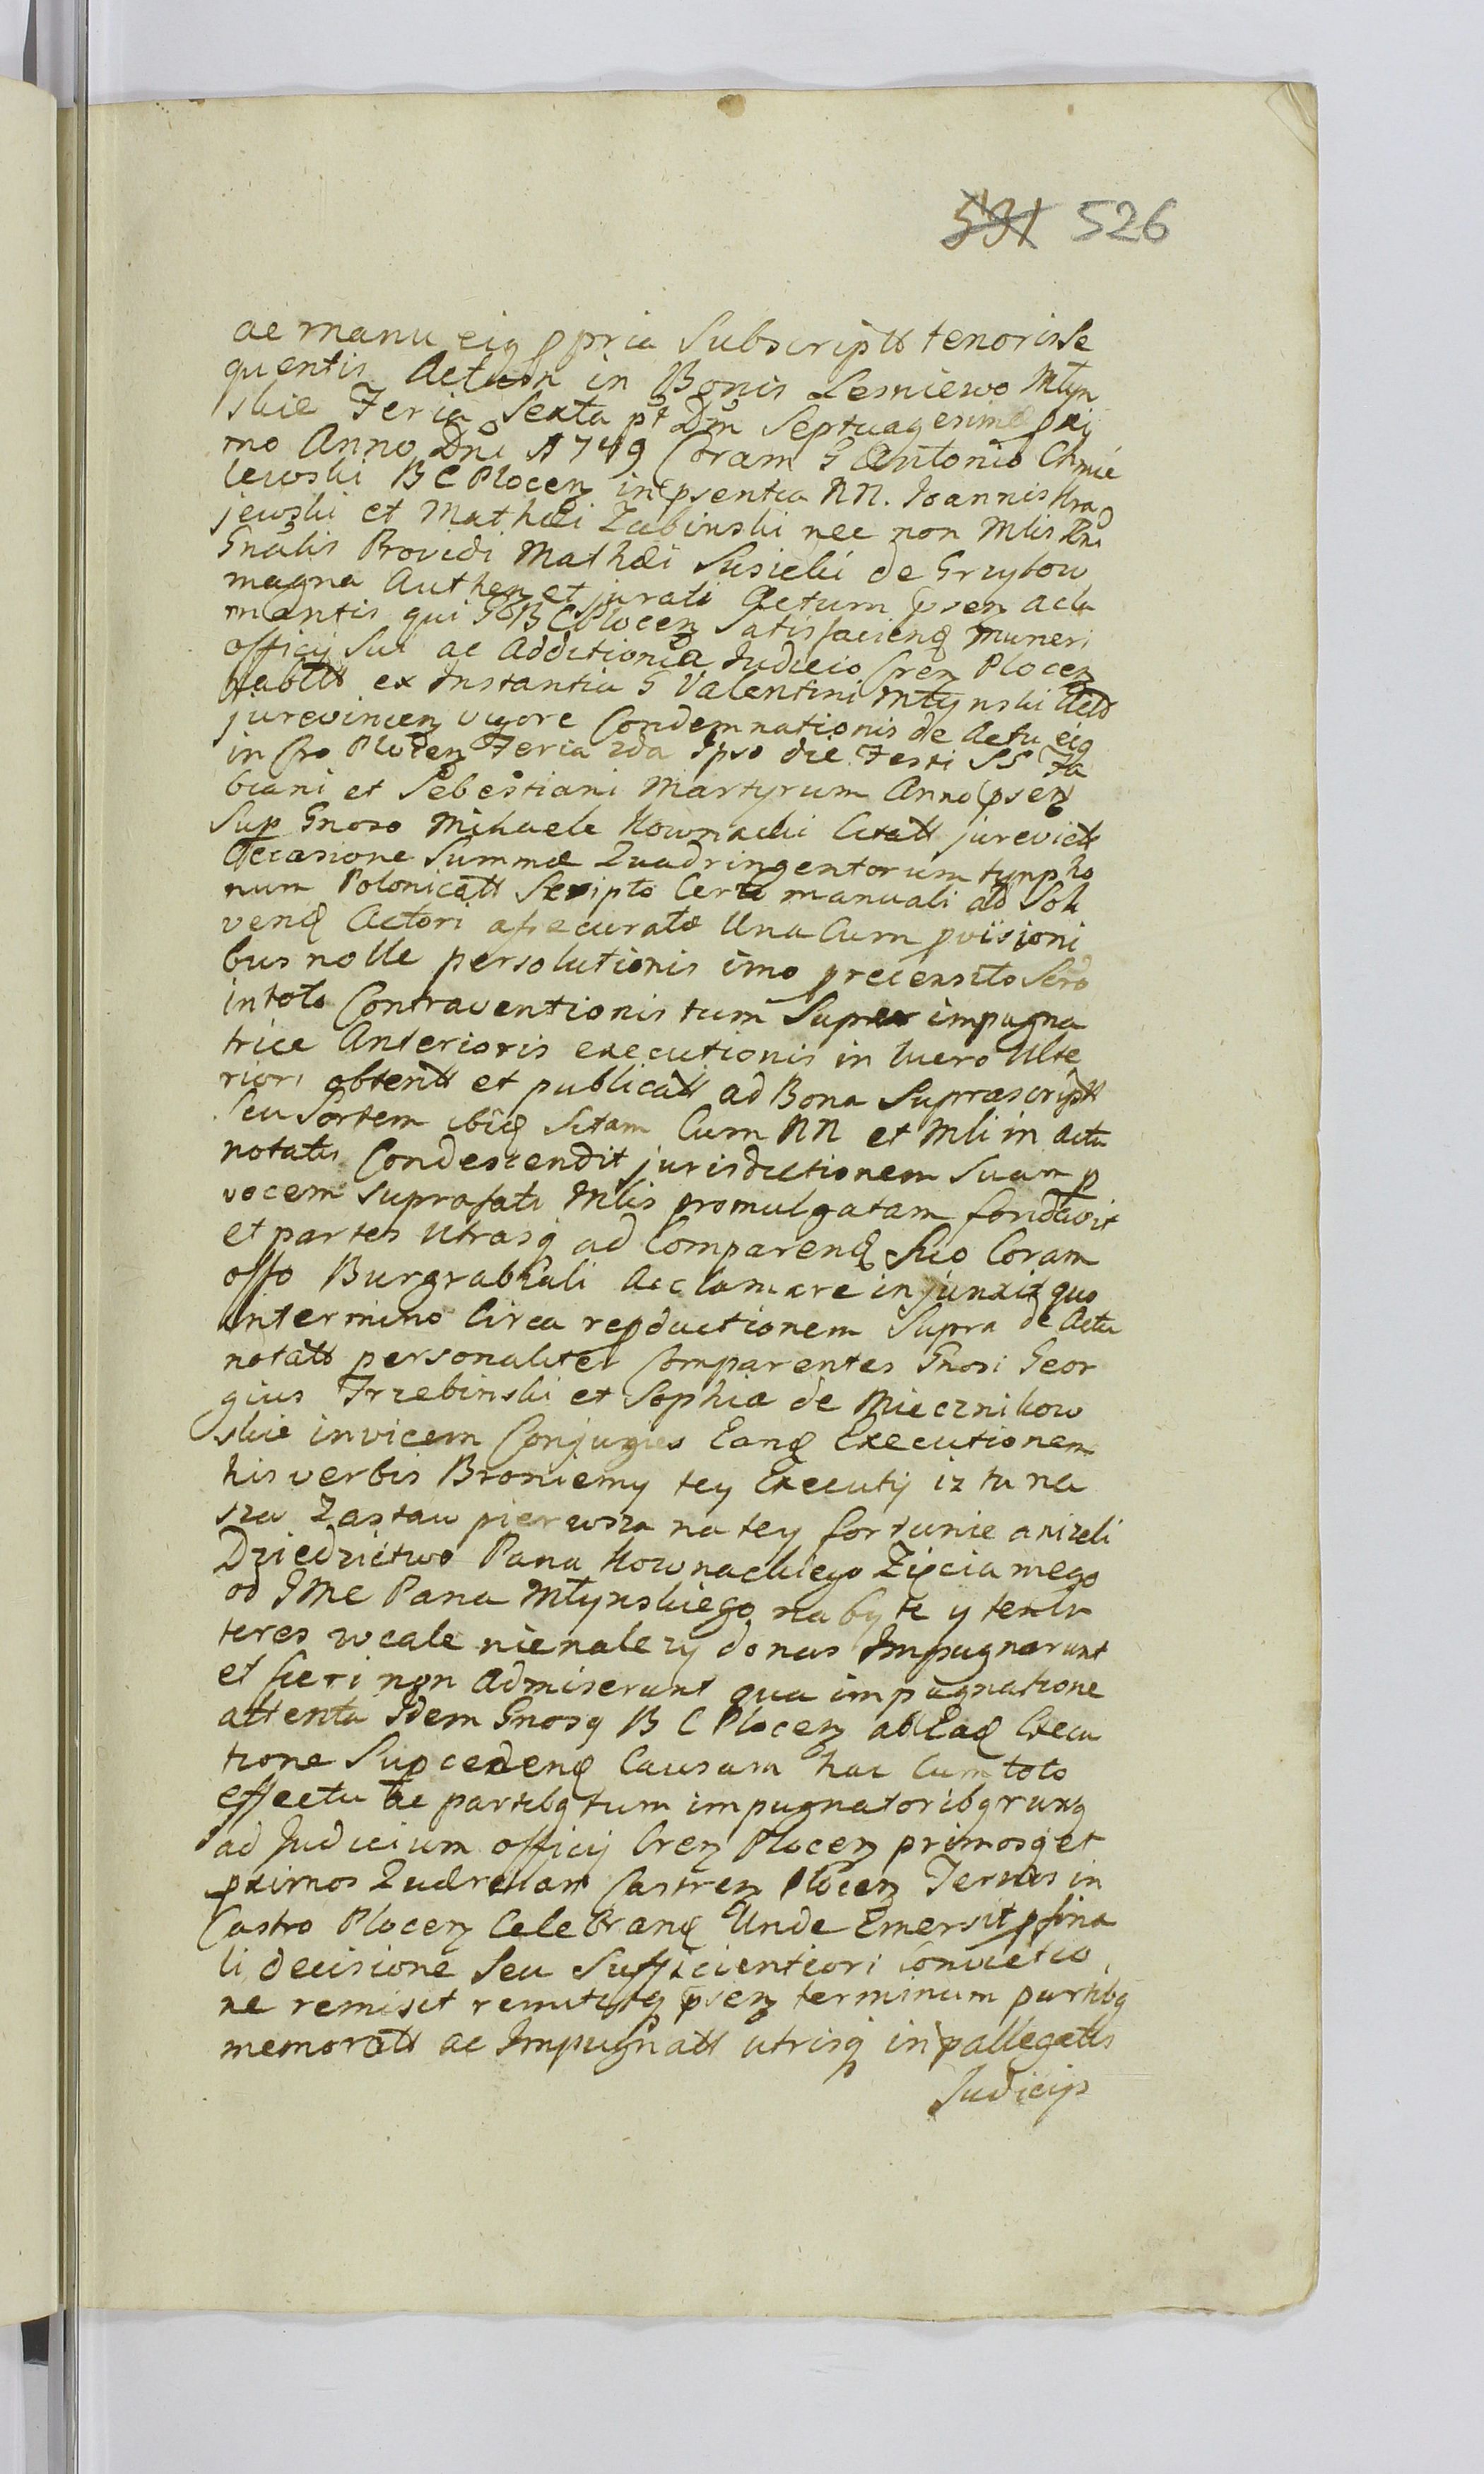 531 526
ac manu eiq ppria Subscriptt tenoris Se
quentis Actum in Bonis Lesniewo Młyn
skie Feria Sexta pt Dm Septuagesimæ pxi
mo Anno Dni 1749 Coram G Antonio Chmie
lewski B C Plocen in psentia NN. Joannis Kra
jewski et Mathæi Zabinski nec non Mlis Rni
Gnalis Providi Mathæi Susicki de Grzybow
magna Authen et jurati Actum psen acla
mantis qui G B C Plocen Satisfaciend muneri
officij Sui ac Additioni a Judicio Cren Plocen
habitt ex Instantia G Valentini Młynski Act
jurevincen vigore Condemnationis de Actu eiq
in Cro Plocen Feria 2da ipso die Festi SS Fa
biani et Sebestiani Martyrum Anno psen
Sup Gnoso Mihaele Kownacki Citatt jurevictt
Occasione Summæ Quadringentorum tynpho
num Polonicatt Scripto Certo manuali ad Sol
vend Actori assecuratæ Una Cum pvisioni
bus nolle persolutionis imo precensito Scro
in toto Contraventionis tum Super impugna
trice Anterioris executionis in lucro Ulte
riori obtentt et publicatt ad Bona Supræscriptt
Seu Sortem ibiq Sitam Cum NN et Mli in actu
notatis Condescendit jurisdictionem Suam p
vocem suprafati Mlis promulgatam fondavit
et partes utrasq ad Comparend Suo Coram
offo Burgrabiali acclamare injunxit quo
in termino Circa repductionem Supra de Actu
notatt personaliter Comparentes Gnosi Geor
gius Trzebinski et Sophia de Miecznikow
skie invicem Conjuges Eand Executionem
his verbis Broniemy tey Executij iz ta na
sza Zastaw pierwsza na tey fortunie anizeli
Dziedzictwo Pana Kownackiego Zięcia mego
od JMc Pana Młynskiego nabyte y ten In
teres wcale nienalezy do nas Impugnarunt
et fieri non Admiserunt qua impugnatione
attenta Idem Gnosq B C Plocen ab Ead Execu
tione Supcedend Causam hac Cum toto
effectu ac partibq tum impugnatoribq rurq
ad Judicium officij Cren Plocen primosq et
pximos Quærellar Castren Plocen Termis in
Castro Plocen Celebrand Unde Emersit p fina
li decisione Seu Sufficientiori Convictio
ne remisit remittitq psen terminum partibq
memoratt ac Impugnatt utrisq in pallegatis
Judicijs